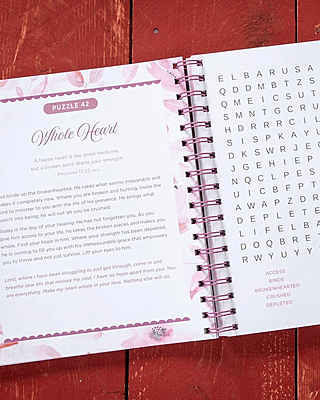 PUZZLE 42
Whole Heart
A happy heart is like good medicine,
but a broken spirit drains your strength.
Proverbs 17:22
God binds up the brokenhearted. He takes what seems irreparable and
makes it completely new. Where you are broken and hurting, invite the
to minister to you with the life of his presence. He brings what
into being; he will not let you be crushed.
Today is the day of your healing. He has not forgotten you. As you
give him access to your life, he takes the broken pieces and makes you
whole. Find your hope in him. Where your strength has been depleted,
he is coming to fill you up with his immeasurable grace that empowers
you to thrive and not just survive. Lift your eyes to him.
Lord, where I have been struggling to just get through, come in and
breathe new life that revives my soul. I have no hope apart from you. You
are everything. Make my heart whole in your love. Nothing else will do.
E L B A R U S A
Q D D M B T Z S
Q M E I C S U T
S M N T G C R U
H D R R R C I L
S I S P K A Y U
D K S W R J E
J G E H I E P
N Q C L P E S
U I C B F P T
A W A P Z D R
D E P L E T E
L I F E L B A
D O Q B R E T
R W Y U Y Y
ACCESS
BINDS
BROKENHEARTED
CRUSHED
DEPLETED